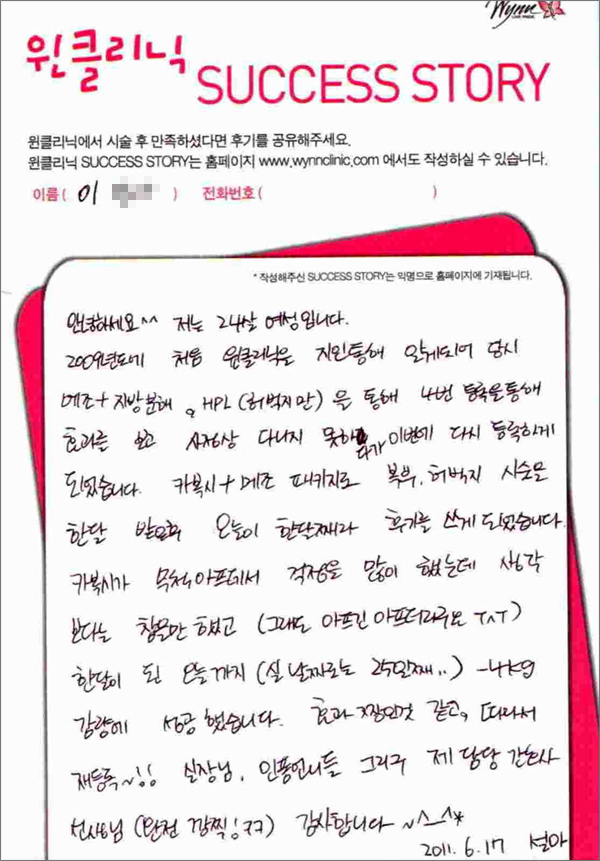 Wynn
윈클리닉
SUCCESS STORY
윈클리닉에서 시술 후 만족하셨다면 후기를 공유해주세요.
윈클리닉 SUCCESS STORY는 홈페이지 www.wynnclinic.com 에서도 작성하실 수 있습니다.
이름 ( 이 ) 전화번호 ( )
* 작성해주신 SUCCESS STORY는 익명으로 홈페이지에 기재됩니다.
안녕하세요^^ 저는 24살 여성입니다.
2009년도에 처음 윈클리닉을 지인통해 알게되어 당시
메조+지방분해, HPL (허벅지만)을 통해 4번 등록을통해
효과를 보고 사정상 다니지 못하다가 이번에 다시 등록하게
되었습니다. 카복시+메조 패키지로 복부, 허벅지 시술을
한달 받은후 오늘이 한달째라 후기를 쓰게 되었습니다.
카복시가 무척아프데서 걱정을 많이 했는데 생각
보다는 참을만 했고 (그래도 아프긴 아프더라구요 T^T)
한달이 된 오늘까지 (실 날짜로는 25일째..) -4kg
감량에 성공했습니다. 효과 짱인것 같고, 따라서
재등록~!! 실장님, 인포언니들 그리구 제 담당 간호사
선생님 (완전 깜찍!ㅋㅋ) 감사합니다 ~^_^*
2011. 6. 17